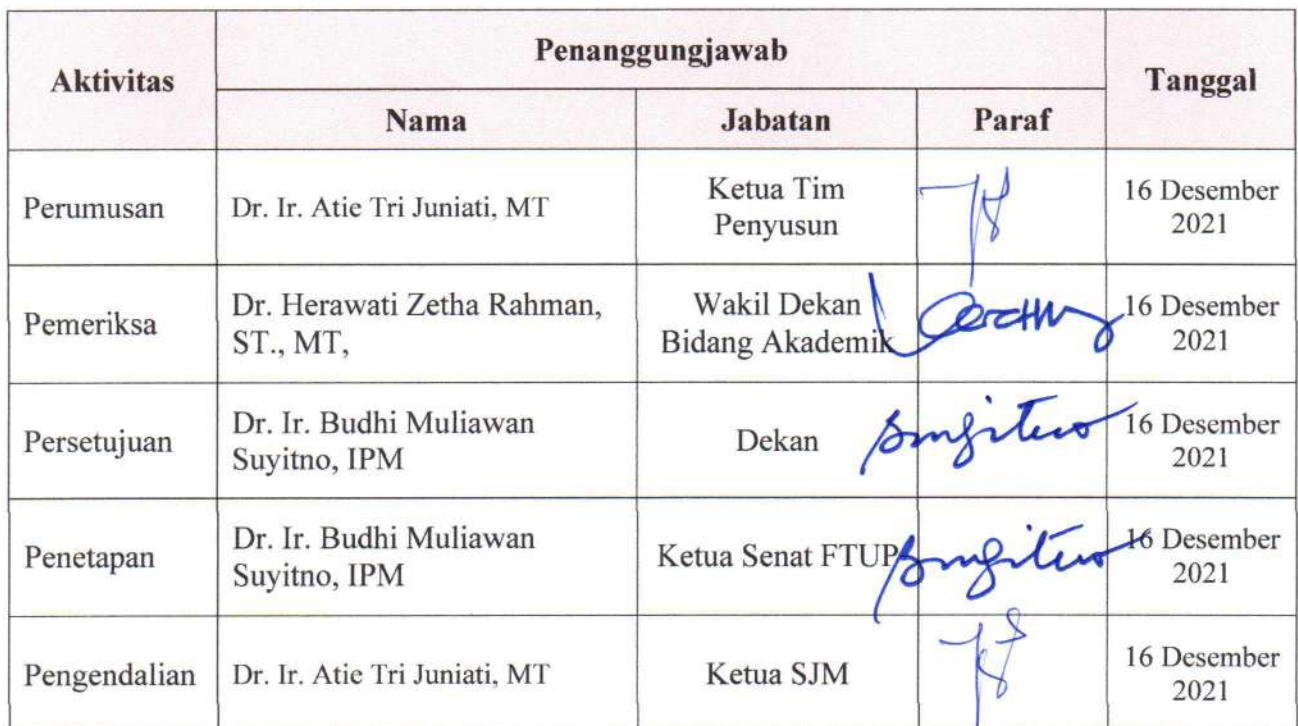 Aktivitas
Penanggungjawab
Tanggal
Nama
Jabatan
Paraf
Perumusan
Dr. Ir. Atie Tri Juniati, MT
Ketua Tim
Penyusun
16 Desember
2021
Pemeriksa
Dr. Herawati Zetha Rahman,
ST., MT,
Wakil Dekan
Bidang Akademik
16 Desember
2021
Persetujuan
Dr. Ir. Budhi Muliawan
Suyitno, IPM
Dekan
16 Desember
2021
Penetapan
Dr. Ir. Budhi Muliawan
Suyitno, IPM
Ketua Senat FTUP
16 Desember
2021
Pengendalian
Dr. Ir. Atie Tri Juniati, MT
Ketua SJM
16 Desember
2021